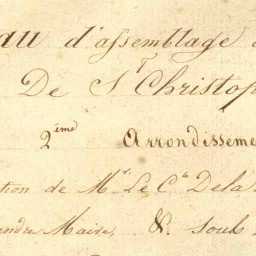 au d'assemblage
De St Christop
2ème Arrondisseme
tion de Mr. Le Cte Dela
Maire, & sous